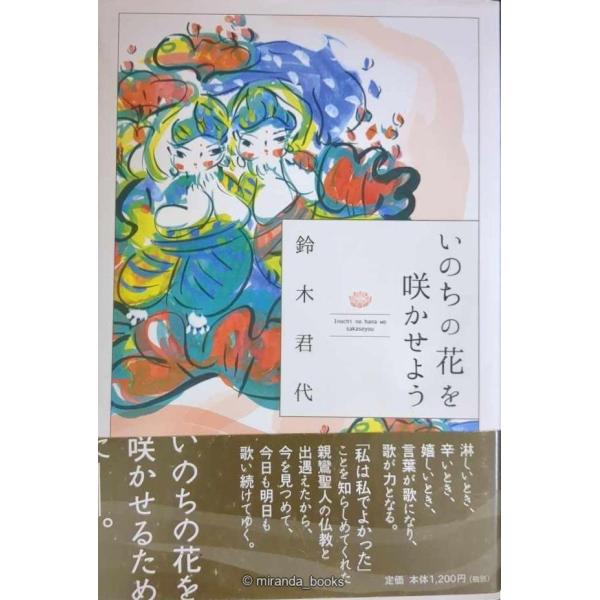 いのちの花を
咲かせよう
Inochi no hana wo
sakaseyou
鈴木君代
淋しいとき、
辛いとき、
嬉しいとき、
言葉が歌になり、
歌が力となる。
「私は私でよかった」
ことを知らしめてくれた
親鸞聖人の仏教と
出遇えたから、
今を見つめて、
今日も明日も
歌い続けてゆく。
いのちの花を
咲かせるため
定価 本体1,200円(税別)
© miranda_books